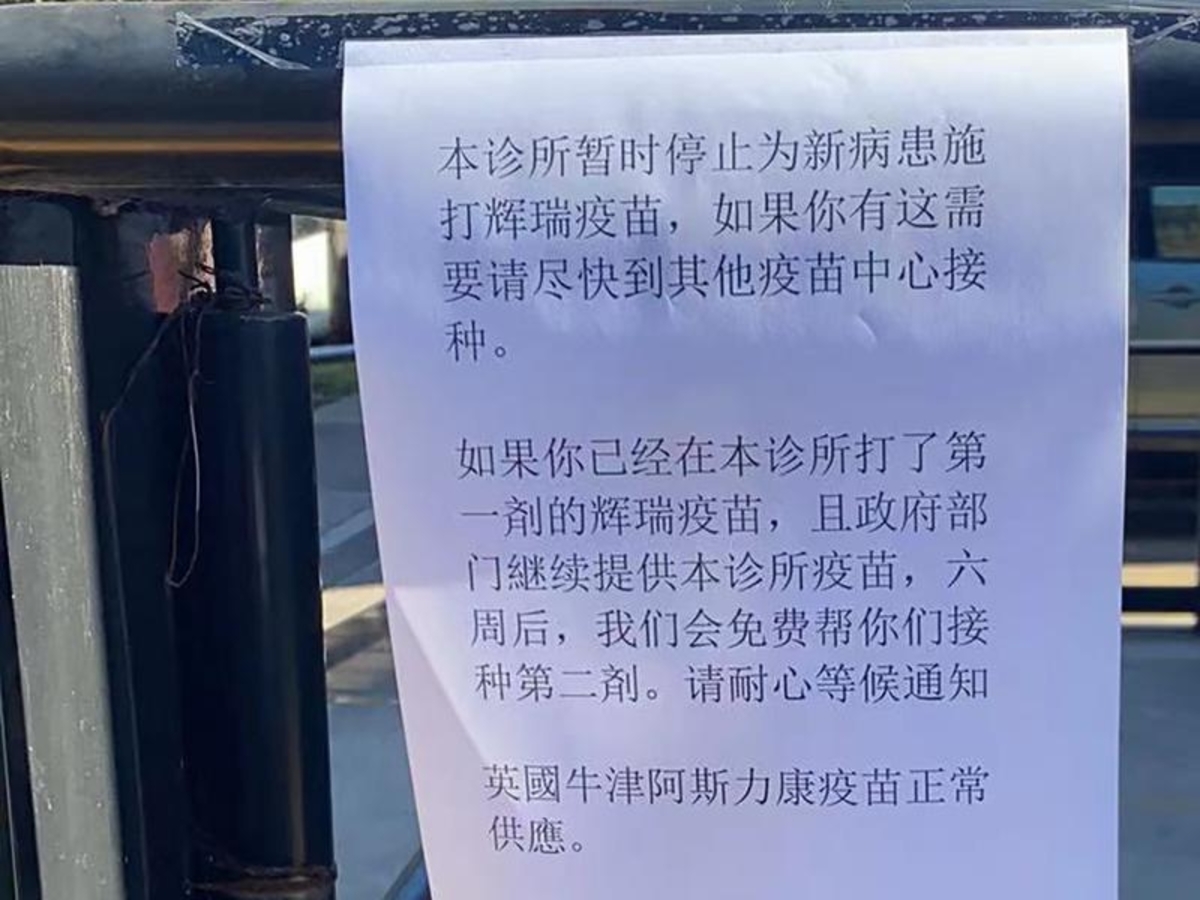 本诊所暂时停止为新病患施
打辉瑞疫苗，如果你有这需
要请尽快到其他疫苗中心接
种。
如果你已经在本诊所打了第
一剤的辉瑞疫苗，且政府部
门継续提供本诊所疫苗，六
周后，我们会免费帮你们接
种第二剤。请耐心等候通知
英國牛津阿斯力康疫苗正常
供應。